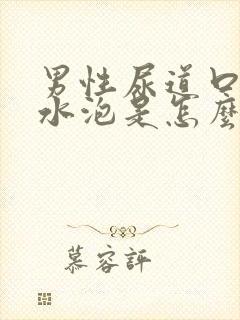 男性尿道口
水泡是怎麼
慕容評